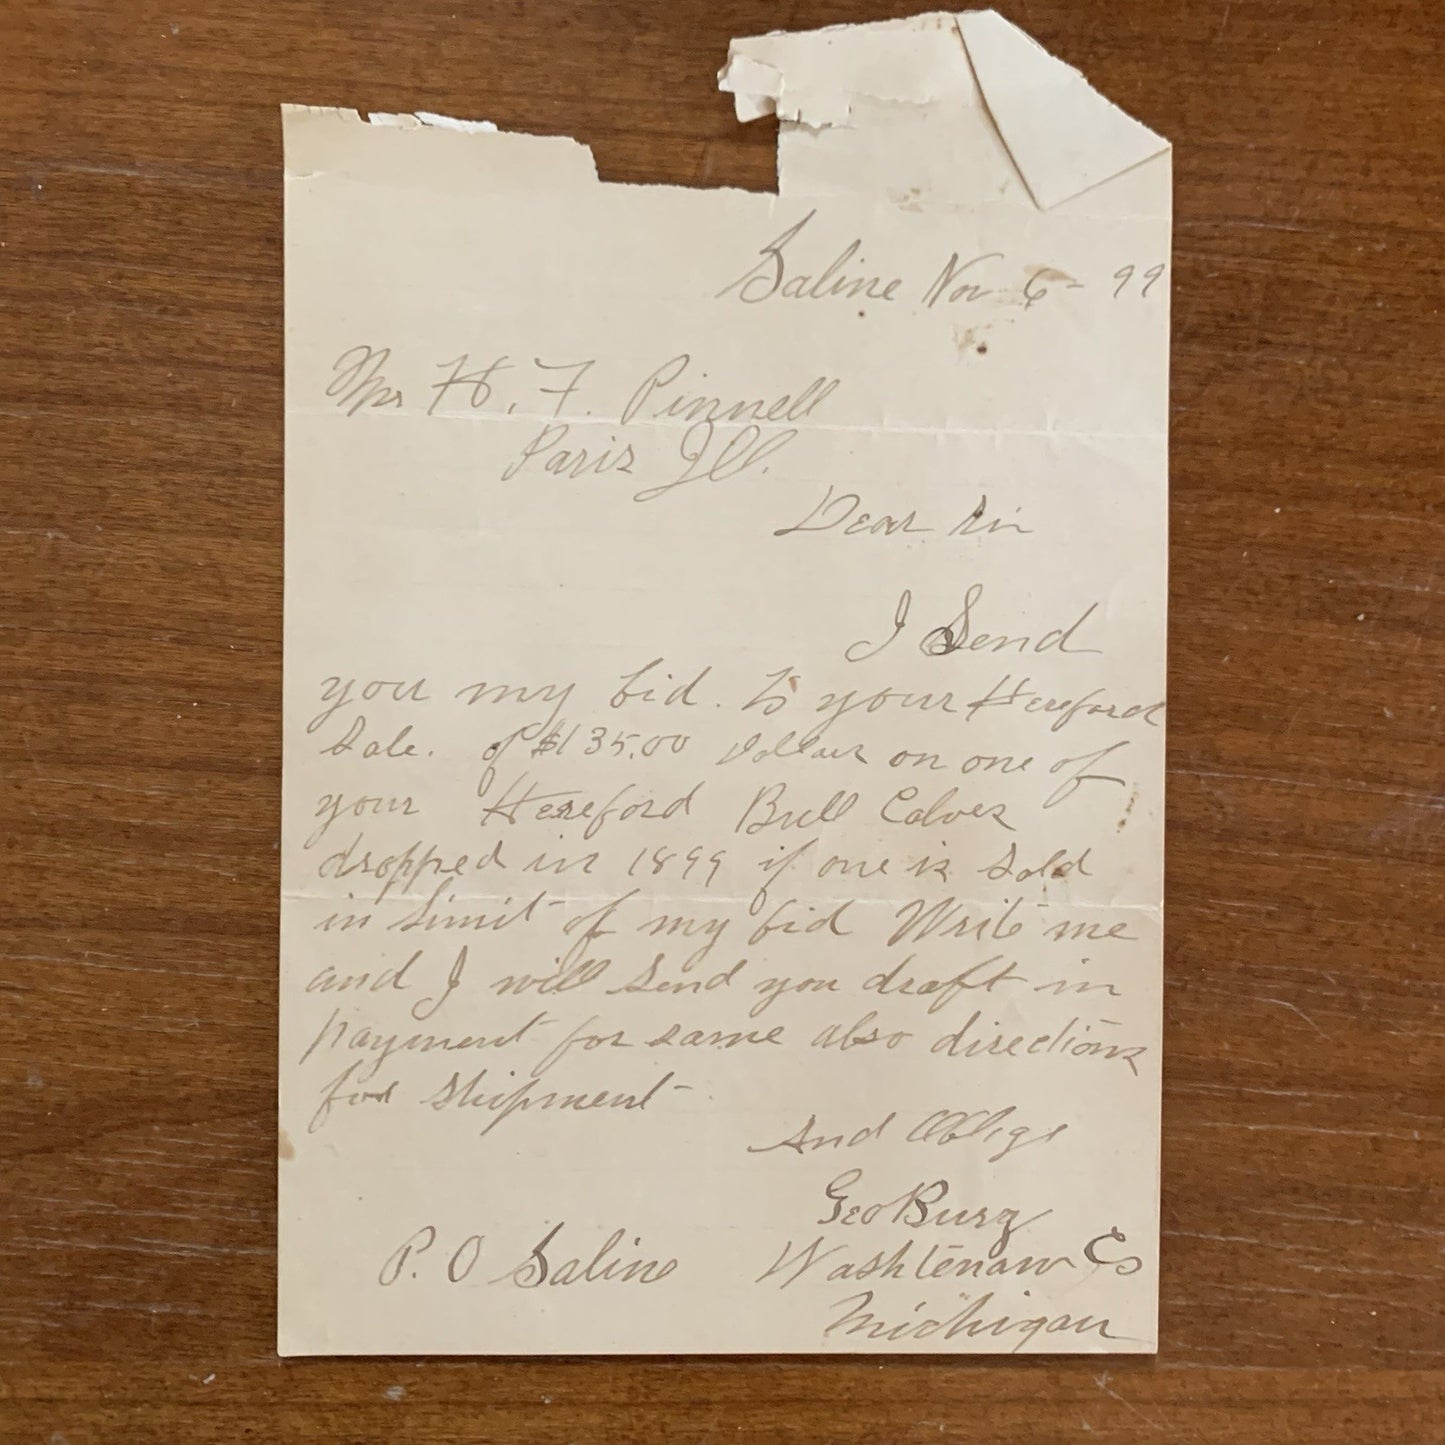 Saline Nov 6 - 99
Mr H. F. Pinnell
Paris Ill.
Dear Sir
I Send
you my bid. to your Hereford
Sale. of $135.00 Dollars on one of
your Hereford Bull Calves
dropped in 1899 if one is Sold
in Limit of my bid Write me
and I will Send you draft in
payment for same also directions
for Shipment
And Oblige
Geo Burg
P.O Saline Washtenaw Co
Michigan